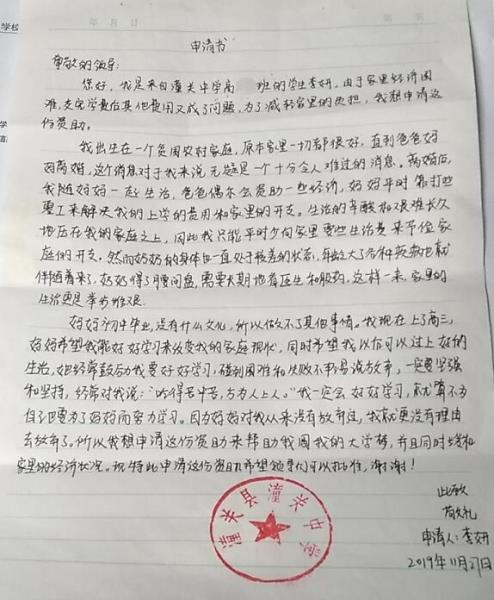 学校
年 月 日
申请书
尊敬的领导:
您好,我是来自潼关中学高 班的学生李妍,由于家里经济困
难,支完学费后其他费用又成了问题,为了减轻家里的负担,我想申请这
份资助。
我出生在一个贫困农村家庭,原本家里一切都很好,直到爸爸妈
妈离婚,这个消息对于我来说无疑是一个十分令人难过的消息。离婚后,
我随妈妈一起生活,爸爸偶尔会资助一些经济,妈妈平时靠打些
零工来解决我的上学的费用和家里的开支。生活的辛酸和艰难长久
地压在我的家庭之上,因此我只能平时少向家里要些生活费来节俭家
庭的开支。然而妈妈的身体也一直处于极差的状态,年龄大了各种疾病也就
伴随着来了,妈妈得了腰间盘,需要长期地看医生和服药,这样一来,家里的
生活更是举步维艰。
妈妈初中毕业,没有什么文化,所以做不了其他事情。我现在上了高三,
妈妈希望我能好好学习来改变我的家庭现状,同时希望我以后可以过上好的
生活,她经常鼓励我要好好学习,碰到困难和失败不轻易说放弃,一定要坚强
和坚持,经常对我说:“吃得苦中苦,方为人上人。”我一定会好好学习,就算不为
自己也要为了妈妈而努力学习。因为妈妈对我从来没有放弃过,我就更没有理由
去放弃了。所以我想申请这份资助来帮助我圆我的大学梦,并且同时
家里的经济状况。现特此申请这份资助希望领导们可以批准,谢谢!
此致
敬礼
申请人:李妍
2019年11月27日
潼关县潼关中学